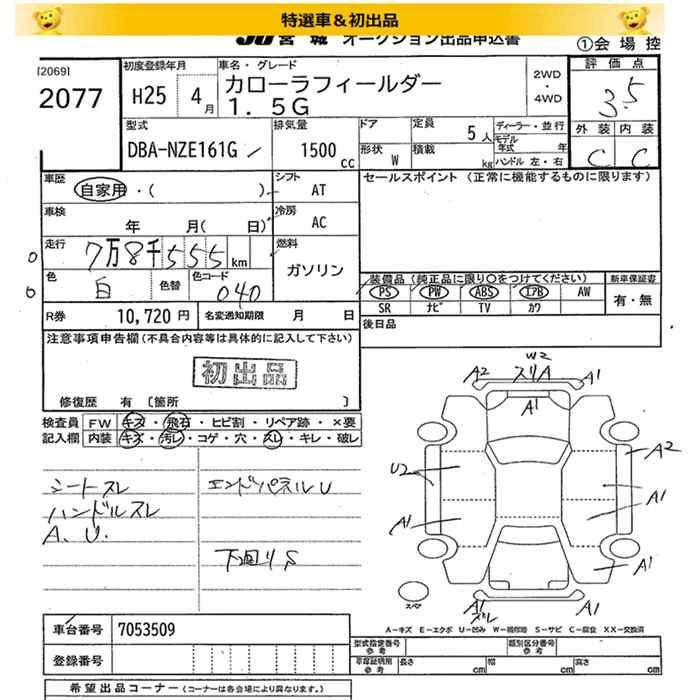 特選車&初出品
JU宮城 オークション出品申込書
①会場控
[2069]
2077
初度登録年月
H25 4月
車名・グレード
カローラフィールダー
1.5G
2WD
・
4WD
評価点
3.5
外装 内装
C C
型式
DBA-NZE161G
排気量
1500 cc
ドア
形状 W
定員 5人
積載 kg
ディーラー・並行
モデル年式 年
ハンドル 左・右
車歴
自家用・( )
シフト
AT
車検
年 月( 日)
冷房
AC
走行
7万8千555km
燃料
ガソリン
色
白
色替
色コード
040
R券 10,720円
名変通知期限 月 日
セールスポイント (正常に機能するものに限ります)
装備品 (純正品に限り○をつけてください)
PS PW ABS エアB AW
SR ナビ TV カワ
新車保証書
有・無
後日品
注意事項申告欄(不具合内容等は具体的に記入して下さい)
初出品
修復歴 有 〔箇所 〕
検査員記入欄
FW キズ・飛石・ヒビ割・リペア跡・×要
内装 キズ・汚レ・コゲ・穴・スレ・キレ・破レ
シートスレ
ハンドルスレ
A、U.
エンドパネルU
下回りS
W2
A2 スリA A1
A1
U2
A2
A1
A1
A1
A1
A1
スレ
スペア
A-キズ E-エクボ U-凹み W-補修跡 S-サビ C-腐食 XX-交換済
車台番号 7053509
登録番号
型式指定番号 参考
類別区分番号 参考
車庫証明用 参考
長さ cm 幅 cm 高さ cm
希望出品コーナー (コーナーは各会場により異なります。)